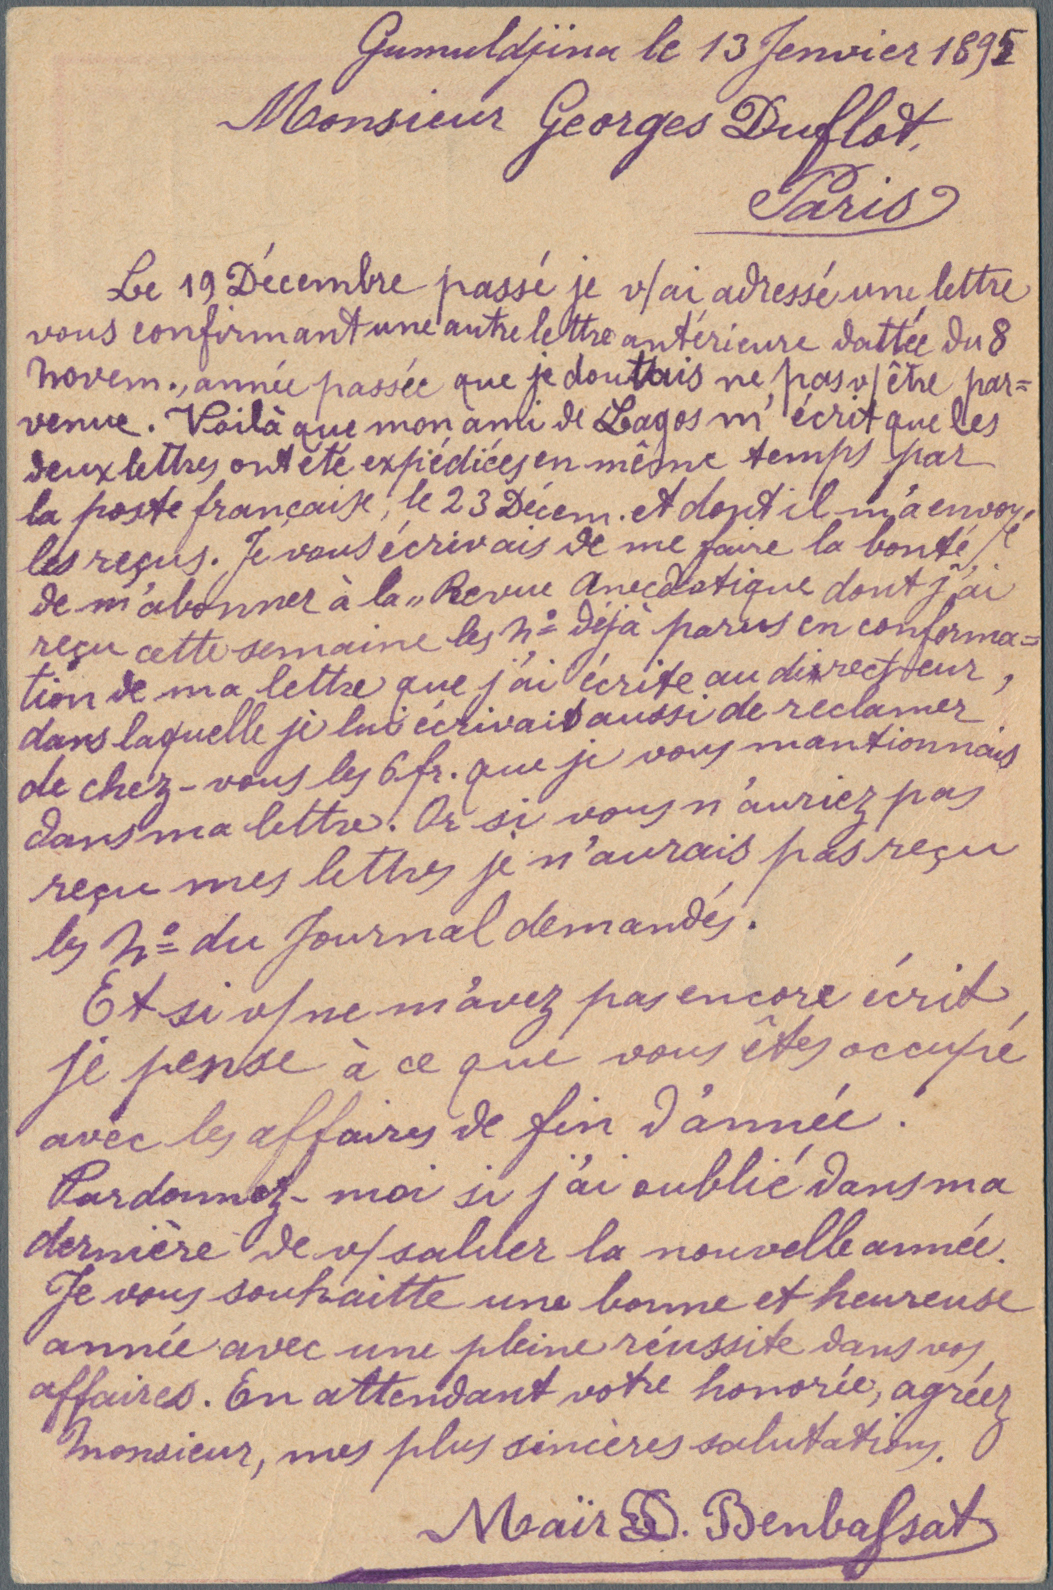 Gumuldjina le 13 Jenvier 1895
Monsieur Georges Duflot,
Paris
Le 19 Décembre passé je v/ai adressé une lettre
vous confirmant une autre lettre antérieure dattée du 8
Novem., année passée que je doutais ne pas v/être par=
venue. Voilà que mon ami de Lagos m'écrit que les
deux lettres ont été expédiées en même temps par
la poste française, le 23 Décem. et dont il m'a envoyé
les reçus. Je vous écrivais de me faire la bonté
de m'abonner à la „Revue Anecdotique dont j'ai
reçu cette semaine les Nº déjà parus en conforma=
tion de ma lettre que j'ai écrite au directeur,
dans laquelle je lui écrivais aussi de reclamer
de chez-vous les 6 fr. que je vous mantionnais
dans ma lettre. Or si vous n'auriez pas
reçu mes lettres je n'aurais pas reçu
les Nº du Journal demandés.
Et si v/ne m'avez pas encore écrit
je pense à ce que vous êtes occupé
avec les affaires de fin d'année.
Pardonnez-moi si j'ai oublié dans ma
dernière de v/saluer la nouvelle année.
Je vous souhaitte une bonne et heureuse
année avec une pleine réussite dans vos
affaires. En attendant votre honorée, agréez
Monsieur, mes plus sincères salutations.
Maïr D. Benbassat